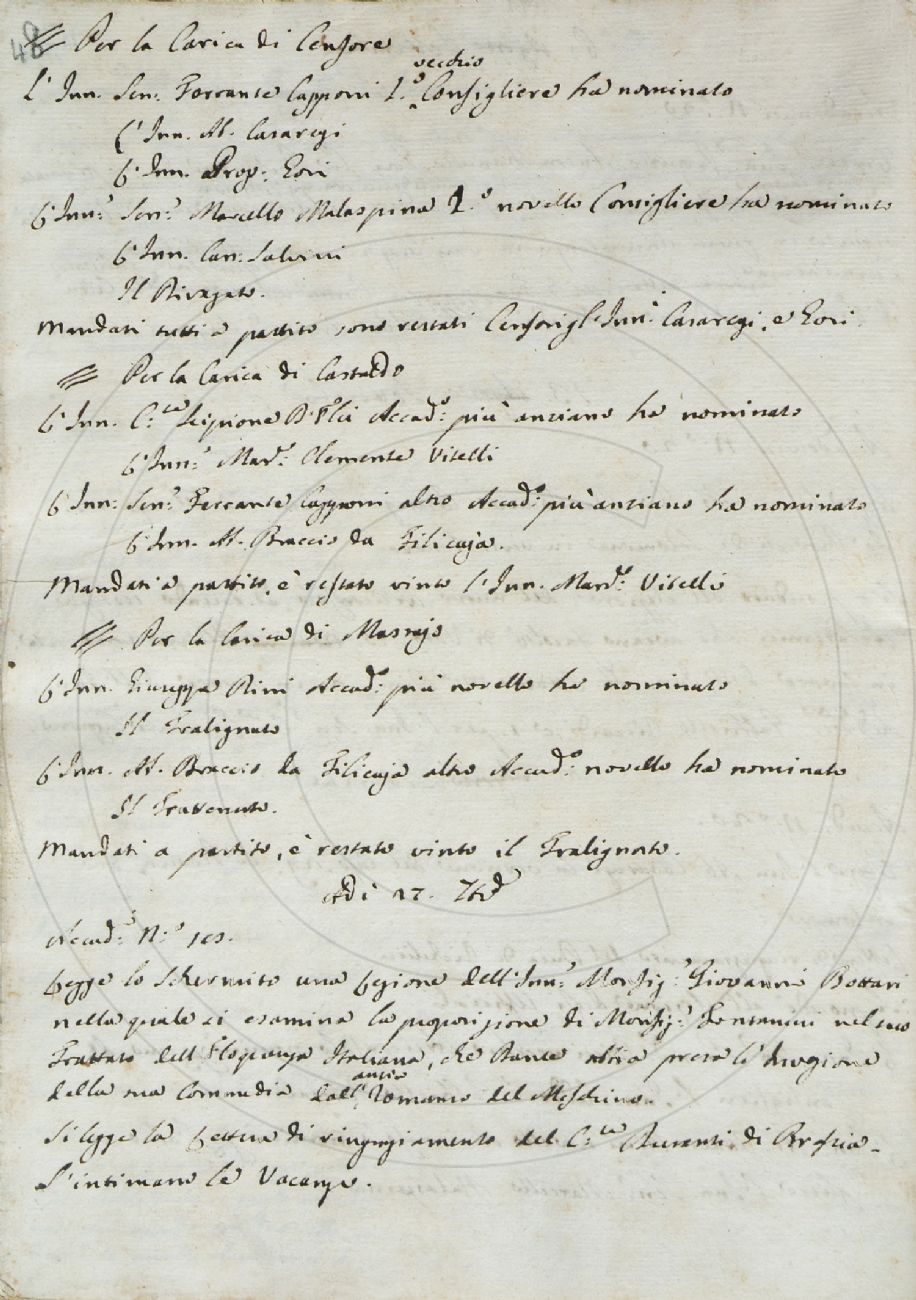 48 Per la Carica di Censore
L'Inn. Sen. Ferrante Capponi 1.º vecchio Consigliere ha nominato
L'Inn. Ab. Casaregi
L'Inn. Prop. Gori
L'Inn. Sen. Marcello Malaspina 1.º novello Consigliere ha nominato
L'Inn. Can. Salvini
Il Rivagato.
Mandati tutti a partito sono restati Censori gl'Inn. Casaregi, e Gori.
Per la Carica di Castaldo
L'Inn. C.te Scipione Accad.º più anziano ha nominato
L'Inn. Mar. Clemente Vitelli
L'Inn. Sen. Ferrante Capponi altro Accad.º più anziano ha nominato
L'Inn. Ab. Braccio da Filicaja.
Mandati a partito, è restato vinto l'Inn. Mar. Vitelli
Per la Carica di Massajo
L'Inn. Giuseppe Bini Accad.º più novello ha nominato
Il Tralignato
L'Inn. Ab. Braccio da Filicaja altro Accad.º novello ha nominato
Il Trattenuto.
Mandati a partito, è restato vinto il Tralignato.
Adi 17. 7bre
Accad. N.º 103.
Legge lo Schermito una Lezione dell'Inn. Monsig. Giovanni Bottari
nella quale si esamina la proposizione di Monsig. Fontanini nel suo
Trattato dell'Eloquenza Italiana, che Dante abbia presa l'
della sua Commedia dall'antico Romanzo del Meschino.
Si legge la Lettera di ringraziamento del C.te Duranti di Brescia.
S'intimano le Vacanze.